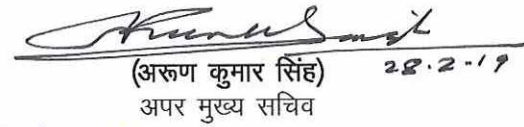 (अरूण कुमार सिंह) 28.2-19
अपर मुख्य सचिव